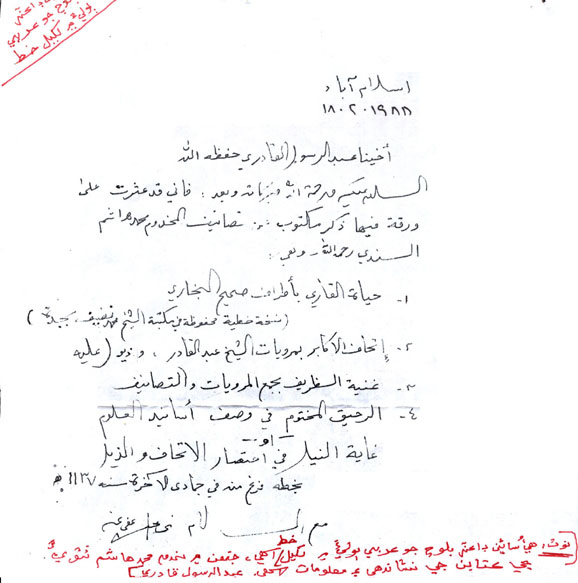 بولي ۾ لکيل خط
اسلام آباد
١٨٠٢٠١٩٨٨
أخينا عبد الرسول القادري حفظه الله
السلام عليكم ورحمة الله وبركاته وبعد : فاني قد عثرت على
ورقة فيها ذكر مكتوب عن تصانيف المخدوم محمد هاشم
السندي رحمه الله - وهي :
١- حياة القاري بأطراف صحيح البخاري
(نسخة خطية محفوظة في مكتبة الشيخ محمد نصيف بجدة)
٢- إتحاف الأكابر بمرويات الشيخ عبد القادر ، وذيو (عليه
٣- غنية الظريف بجمع المرويات والتصانيف
٤- الرحيق المختوم في وصف أسانيد العلوم
أو
غاية النيل في اختصار الاتحاف والذيل
بخطه فرغ منه في جمادى الآخرة سنه ١١٣٧ ھ
مع السلام
نوٽ: هي اسانين جو عربي ٻولي ۾ لکيل خط آهي، جنهن ۾ مخدوم محمد هاشم ٺٽوي
جي ڪتابن جي نشاندهي ۽ معلومات آهي. عبدالرسول قادري